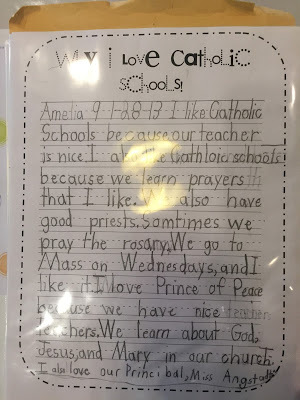 WHY I LOVE CatHoLiC
ScHooLS!
Amelia 9 1-28-13 I like Catholic
Schools because our teacher
is nice. I also like Cathloic schools
because we learn prayers
that I like. We also have
good priests. Somtimes we
pray the rosary. We go to
Mass on Wednesdays, and I
like it. I love Prince of Peace
because we have nice teacher
teachers. We learn about God,
Jesus, and Mary in our church.
I also love our Princibal, Miss Angstadt